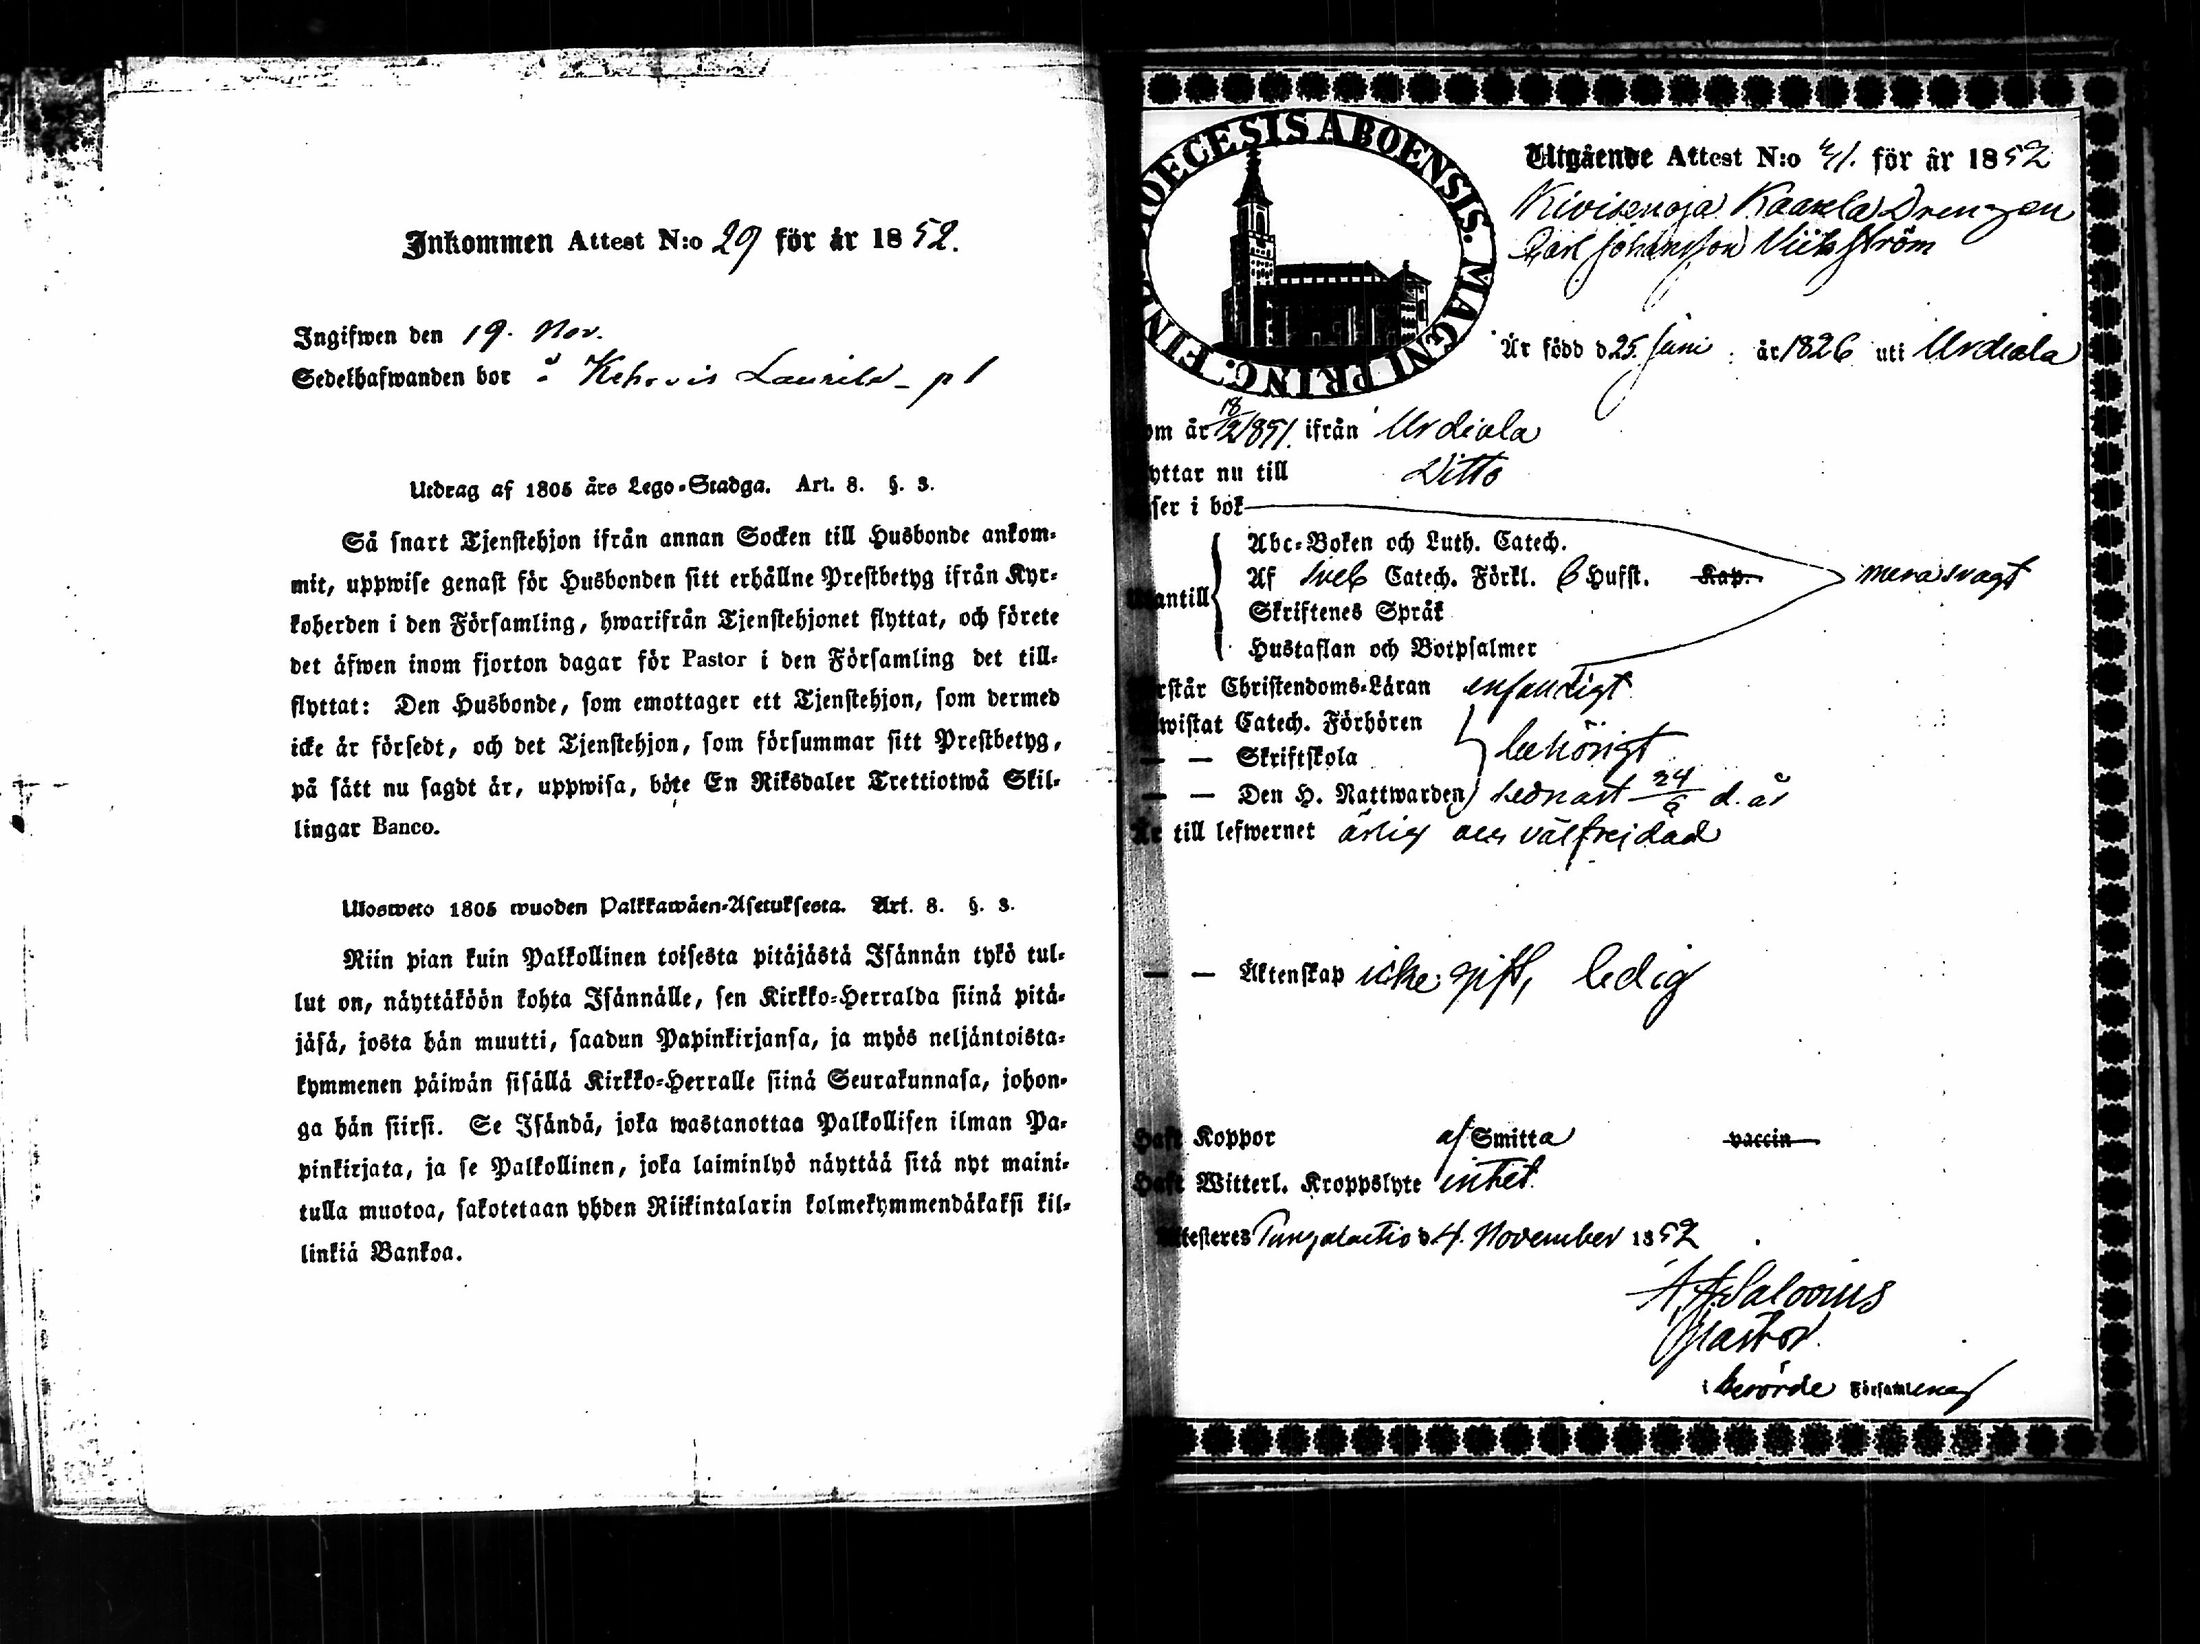 Inkommen Attest N:o 29 för år 1852.
Ingifwen den 19. Nov.
Sedelhafwanden bor å Kehrois Laurila p 1
Utdrag af 1805 års Lego-Stadga. Art. 8. §. 3.
Så snart Tjenstehjon ifrån annan Socken till Husbonde ankom-
mit, uppwise genast för Husbonden sitt erhållne Prestbetyg ifrån Kyr-
koherden i den Församling, hwarifrån Tjenstehjonet flyttat, och förete
det äfwen inom fjorton dagar för Pastor i den Församling det till-
flyttat: Den Husbonde, som emottager ett Tjenstehjon, som dermed
icke är försedt, och det Tjenstehjon, som försummar sitt Prestbetyg,
på sätt nu sagdt är, uppwisa, böte En Riksdaler Trettiotwå Skil-
lingar Banco.
Ulosweto 1805 wuoden Palkkawäen-Asetuksesta. Art. 8. §. 3.
Niin pian kuin Palkollinen toisesta pitäjästä Isännän tykö tul-
lut on, näyttäköön kohta Isännälle, sen Kirkko-Herralda siinä pitä-
jäsä, josta hän muutti, saadun Papinkirjansa, ja myös neljäntoista-
kymmenen päiwän sisällä Kirkko-Herralle siinä Seurakunnasa, johon-
ga hän siirsi. Se Isändä, joka wastanottaa Palkollisen ilman Pa-
pinkirjata, ja se Palkollinen, joka laiminlyö näyttää sitä nyt maini-
tulla muotoa, sakotetaan yhden Riikintalarin kolmekymmendäkaksi kil-
linkiä Bankoa.
DIOECESIS ABOENSIS. MAGNI PRINC. FINL.
Utgående Attest N:o 41. för år 1852
Kivisenoja Kaarela Drengen
Carl Johansson Vikström
Är född d 25 Juni år 1826 uti Urdiala
om år 18/12 1851. ifrån Urdiala
yttar nu till Ditto
ser i bok
Abc-Boken och Luth. Catech.
Af Sveb Catech. Förkl. 6 Hufst. Kap. mera svagt
antill
Skriftenes Språk
Hustaflan och Botpsalmer
rstår Christendoms-Läran enfaldigt
wistat Catech. Förhören
— — Skriftskola behörigt
— — Den H. Nattwarden sednast 24/6 d. år
Är till lefwernet ärlig och välfrejdad
— — Äktenskap icke gift, ledig
Haft Koppor af Smitta vaccin
Haft Witterl. Kroppslyte intet
ttesteres Pungalaitio d 4. November 1852
A. F. Salovius
Pastor
i berörde Församling